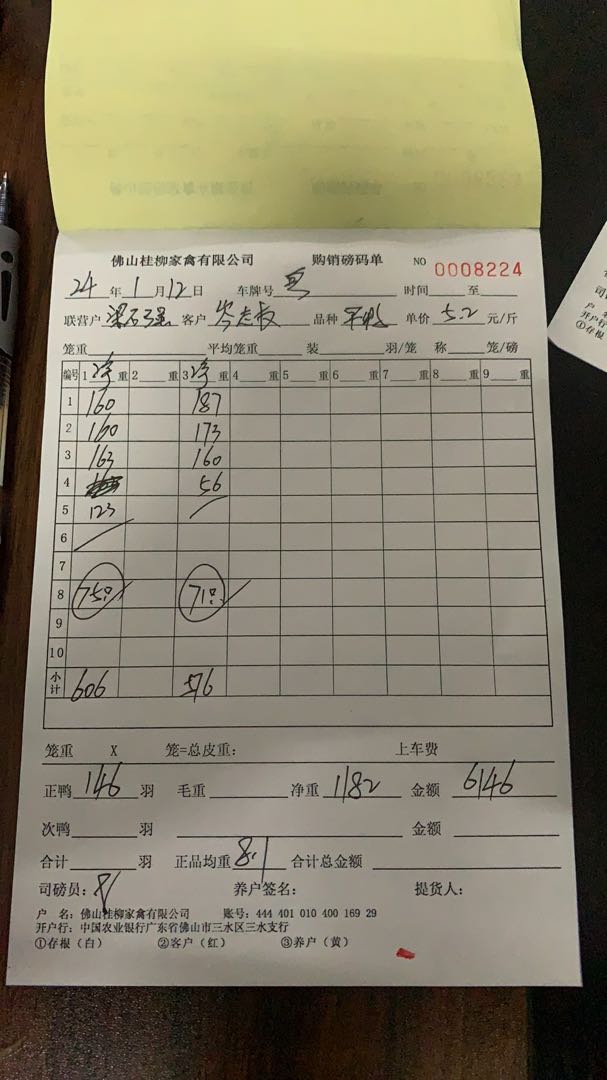 佛山桂柳家禽有限公司 购销磅码单 NO 0008224
24年1月12日 车牌号 时间 至
联营户 梁石强 客户 岑老板 品种 单价 5.2 元/斤
笼重 平均笼重 装 羽/笼 称 笼/磅
编号 1 重 2 重 3 重 4 重 5 重 6 重 7 重 8 重 9 重
1 160 187
2 160 173
3 163 160
4 56
5 123
6
7
8 75只 71只
9
10
小计 606 576
笼重 X 笼=总皮重: 上车费
正鸭 146 羽 毛重 净重 1182 金额 6146
次鸭 羽 金额
合计 羽 正品均重 8.1 合计总金额
司磅员: 养户签名: 提货人:
户 名: 佛山桂柳家禽有限公司 账号: 444 401 010 400 169 29
开户行: 中国农业银行广东省佛山市三水区三水支行
①存根（白） ②客户（红） ③养户（黄）